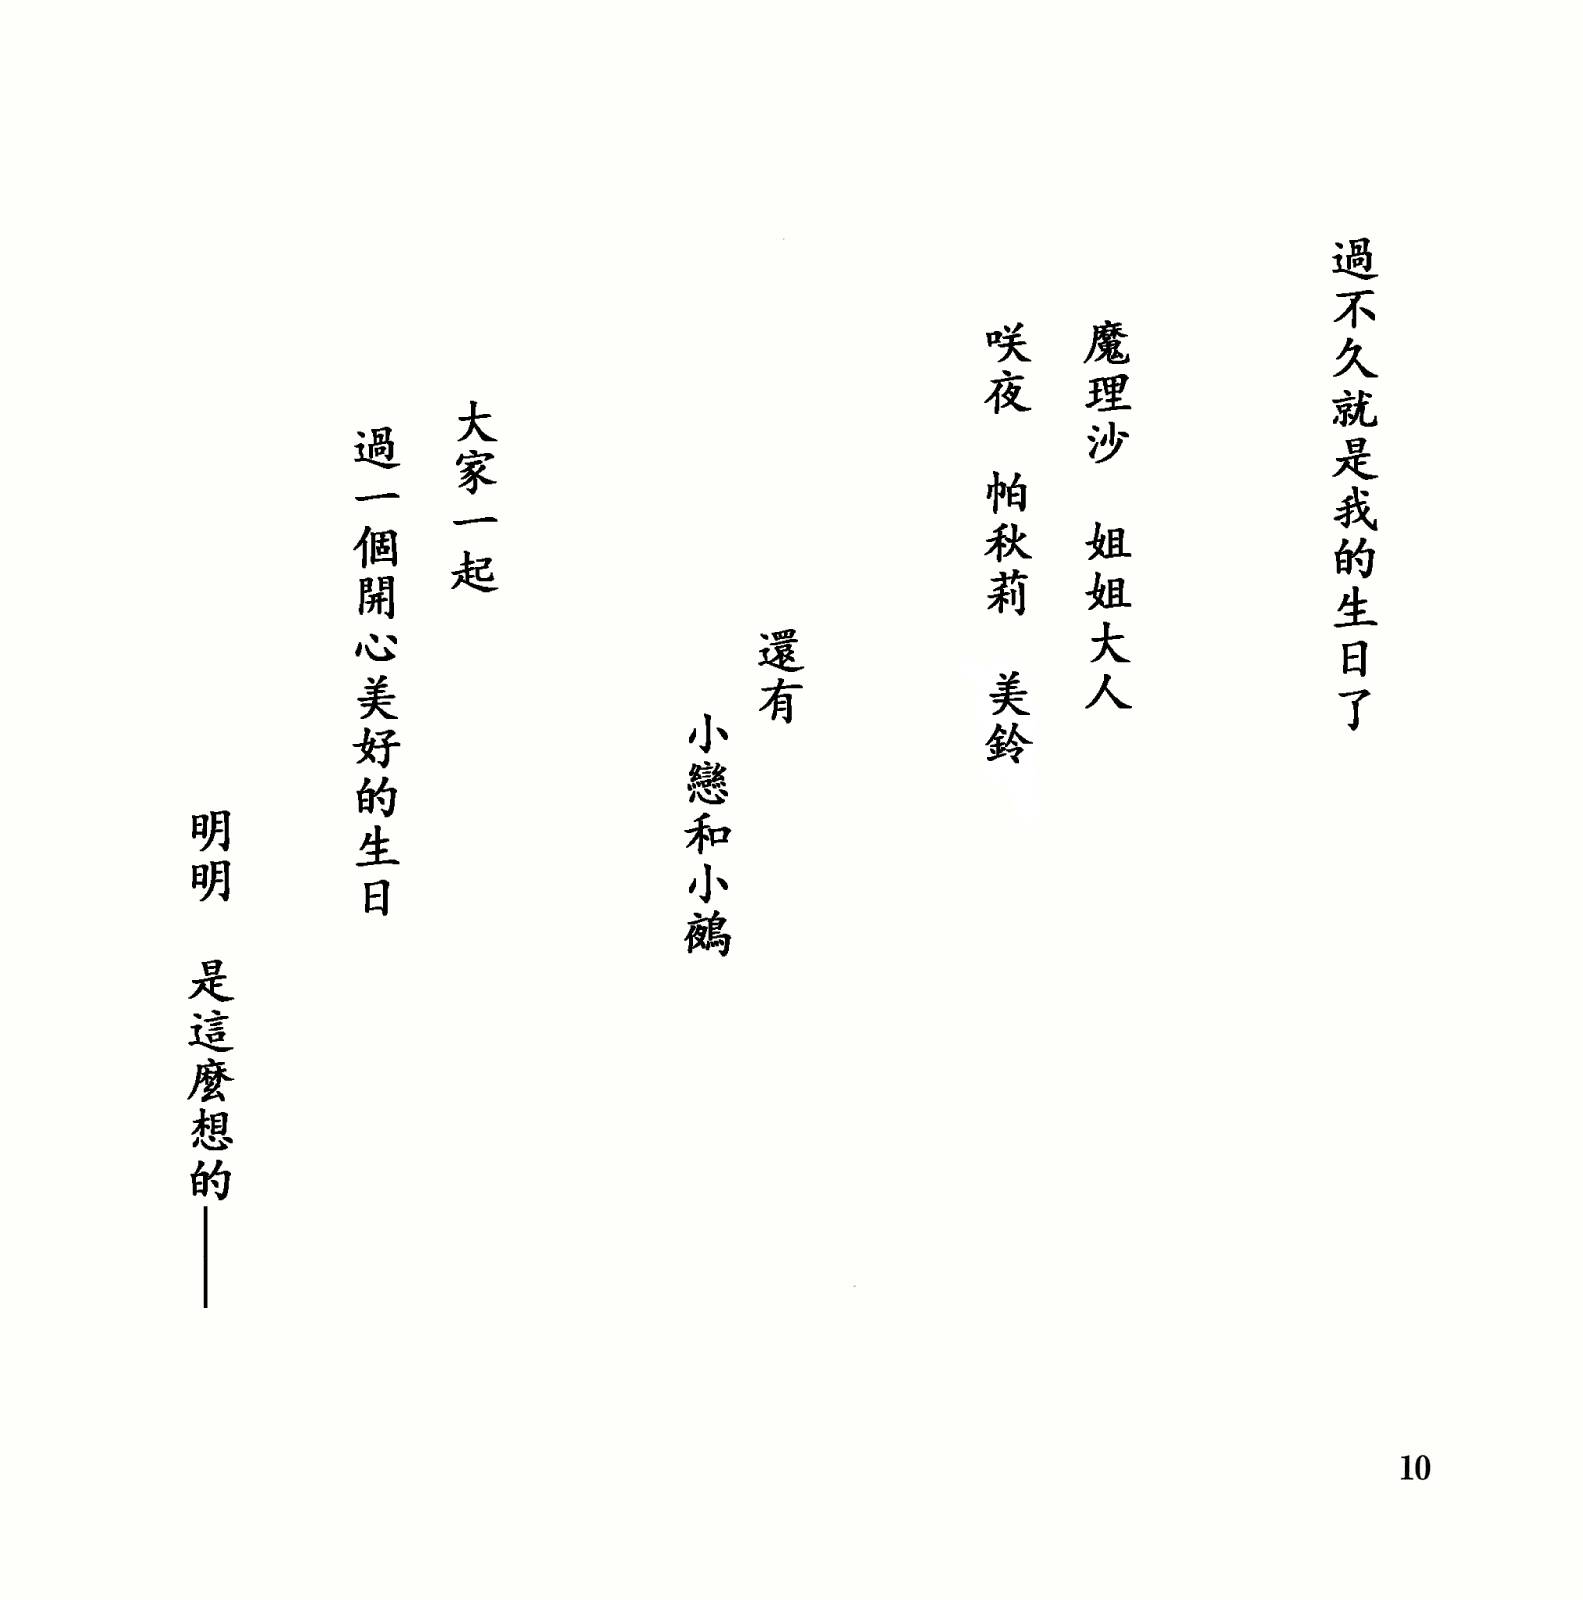 過不久就是我的生日了
魔理沙　姐姐大人
咲夜　帕秋莉　美鈴
還有
小戀和小鵺
大家一起
過一個開心美好的生日
明明　是這麼想的——
10